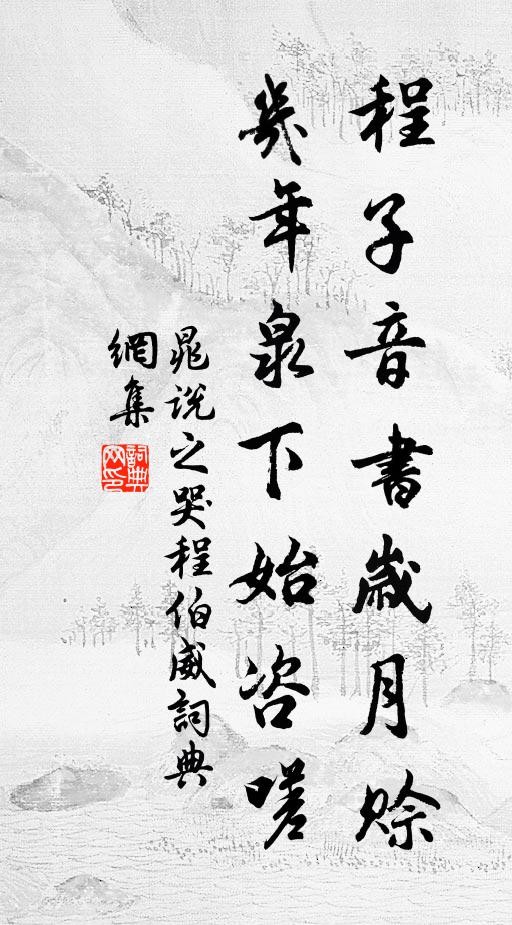 程子音書歲月賒
幾年泉下始咨嗟
晁說之哭程伯威詞典
網集
詞典網印